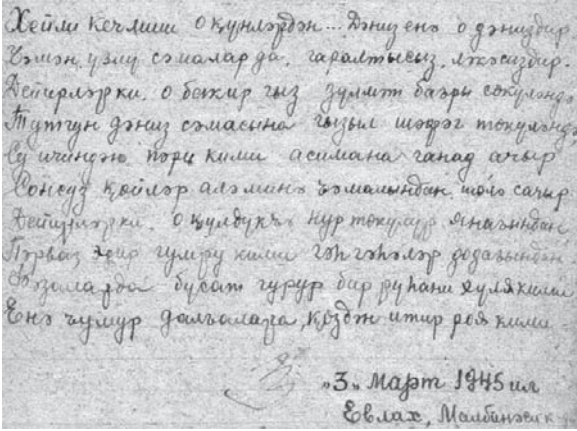 Хейли кечмиш о күнлэрдэн... Дэниз енэ о дэниздир.
Чэмэн үзлү сэмалар да, гаралтысыз, лэкэсиздир.
Дейирлэр ки, о бакир гыз зүлмэт бағры сөкүлэндэ
Тутгун дэниз сэмасына гызыл шэфэг төкүлэндэ,
Су ичиндэн пэри кими асимана ганад ачыр
Сонсуз көйлэр алэминэ чамалындан шөлэ сачыр.
Дейирлэр ки, о күлдүкчэ нур төкүлүр янағындан,
Пэрваз эдир гумру кими гэһгэһэлэр додағындан,
Фэзаларда бусат гурур бир руһани хуля кими
Енэ чумур далғалара, көздэн итир рөя кими
"3" Март 1945 ил
Евлах,